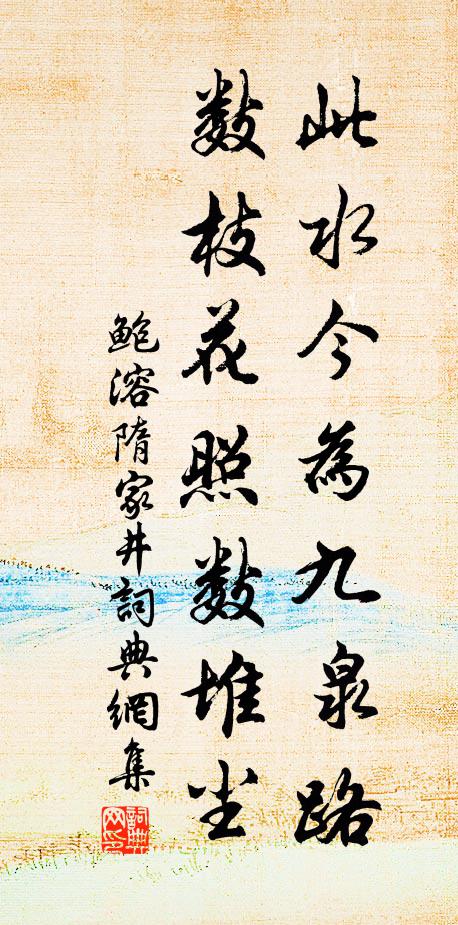 此水今為九泉路
數枝花照數堆尘
鲍溶隋家井詞典網集
詞典
网